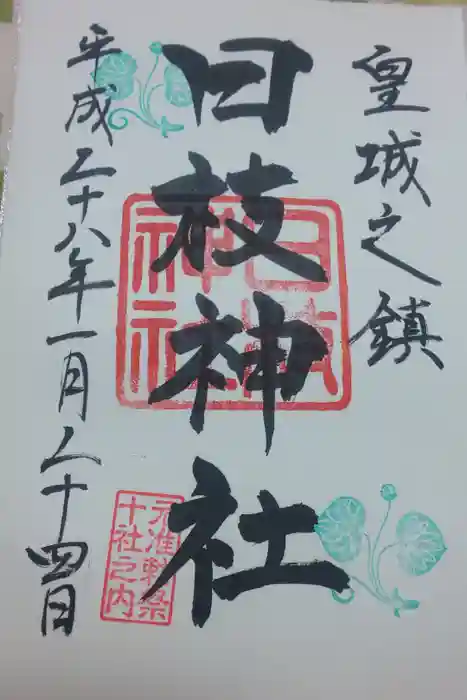 皇城之鎮
日枝神社
日枝神社
元准勅祭
十社之内
平成二十八年一月二十四日